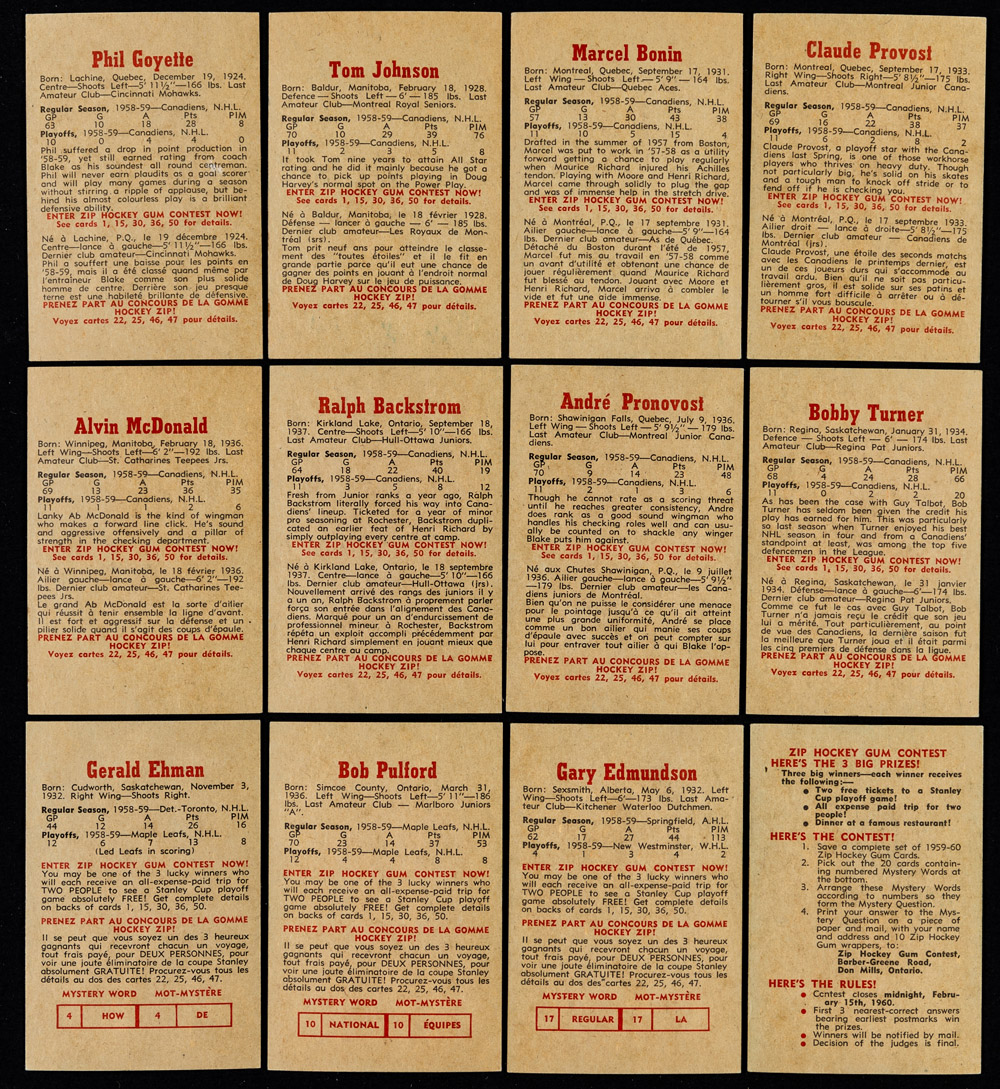 Phil Goyette
Born: Lachine, Quebec, December 19, 1924.
Centre—Shoots Left—5' 11½"—166 lbs. Last
Amateur Club—Cincinnati Mohawks.
Regular Season, 1958-59—Canadiens, N.H.L.
GP G A Pts PIM
63 10 18 28 8
Playoffs, 1958-59—Canadiens, N.H.L.
10 0 4 4 0
Phil suffered a drop in point production in
'58-59, yet still earned rating from coach
Blake as his soundest all round centreman.
Phil will never earn plaudits as a goal scorer
and will play many games during a season
without stirring a ripple of applause, but be-
hind his almost colourless play is a brilliant
defensive ability.
ENTER ZIP HOCKEY GUM CONTEST NOW!
See cards 1, 15, 30, 36, 50 for details.
Né à Lachine, P.Q., le 19 décembre 1924.
Centre—lance à gauche—5' 11½"—166 lbs.
Dernier club amateur—Cincinnati Mohawks.
Phil a souffert une baisse pour les points en
'58-59, mais il a été classé quand même par
l'entraîneur Blake comme son plus solide
homme de centre. Derrière son jeu presque
terne est une habileté brillante de défensive.
PRENEZ PART AU CONCOURS DE LA GOMME
HOCKEY ZIP!
Voyez cartes 22, 25, 46, 47 pour détails.
Tom Johnson
Born: Baldur, Manitoba, February 18, 1928.
Defence—Shoots Left—6'—185 lbs. Last
Amateur Club—Montreal Royal Seniors.
Regular Season, 1958-59—Canadiens, N.H.L.
GP G A Pts PIM
70 10 29 39 76
Playoffs, 1958-59—Canadiens, N.H.L.
11 2 3 5 8
It took Tom nine years to attain All Star
rating and he did it mainly because he got a
chance to pick up points playing in Doug
Harvey's normal spot on the Power Play.
ENTER ZIP HOCKEY GUM CONTEST NOW!
See cards 1, 15, 30, 36, 50 for details.
Né à Baldur, Manitoba, le 18 février 1928.
Défense—lancer à gauche—6'—185 lbs.
Dernier club amateur—Les Royaux de Mon-
tréal (srs).
Tom prit neuf ans pour atteindre le classe-
ment des "toutes étoiles" et il le fit en
grande partie parce qu'il eut une chance de
gagner des points en jouant à l'endroit normal
de Doug Harvey sur le jeu de puissance.
PRENEZ PART AU CONCOURS DE LA GOMME
HOCKEY ZIP!
Voyez cartes 22, 25, 46, 47 pour détails.
Marcel Bonin
Born: Montreal, Quebec, September 17, 1931.
Left Wing—Shoots Left—5' 9"—164 lbs.
Last Amateur Club—Quebec Aces.
Regular Season, 1958-59—Canadiens, N.H.L.
GP G A Pts PIM
57 13 30 43 38
Playoffs, 1958-59—Canadiens, N.H.L.
11 10 5 15 4
Drafted in the summer of 1957 from Boston,
Marcel was put to work in '57-58 as a utility
forward getting a chance to play regularly
when Maurice Richard injured his Achilles
tendon. Playing with Moore and Henri Richard,
Marcel came through solidly to plug the gap
and was of immense help in the stretch drive.
ENTER ZIP HOCKEY GUM CONTEST NOW!
See cards 1, 15, 30, 36, 50 for details.
Né à Montréal, P.Q., le 17 septembre 1931.
Ailier gauche—lance à gauche—5' 9"—164
lbs. Dernier club amateur—As de Québec.
Détaché du Boston durant l'été de 1957,
Marcel fut mis au travail en '57-58 comme
un avant d'utilité et obtenant une chance de
jouer régulièrement quand Maurice Richard
fut blessé au tendon. Jouant avec Moore et
Henri Richard, Marcel arriva à combler le
vide et fut une aide immense.
PRENEZ PART AU CONCOURS DE LA GOMME
HOCKEY ZIP!
Voyez cartes 22, 25, 46, 47 pour détails.
Claude Provost
Born: Montreal, Quebec, September 17, 1933.
Right Wing—Shoots Right—5' 8½"—175 lbs.
Last Amateur Club—Montreal Junior Cana-
diens.
Regular Season, 1958-59—Canadiens, N.H.L.
GP G A Pts PIM
69 16 22 38 37
Playoffs, 1958-59—Canadiens, N.H.L.
11 6 2 8 2
Claude Provost, a playoff star with the Cana-
diens last Spring, is one of those workhorse
players who thrives on heavy duty. Though
not particularly big, he's solid on his skates
and a tough man to knock off stride or to
fend off if he is checking you.
ENTER ZIP HOCKEY GUM CONTEST NOW!
See cards 1, 15, 30, 36, 50 for details.
Né à Montréal, P.Q., le 17 septembre 1933.
Ailier droit—lance à droite—5' 8½"—175
lbs. Dernier club amateur—Canadiens de
Montréal (jrs).
Claude Provost, une étoile des seconds matchs
avec les Canadiens le printemps dernier, est
un de ces joueurs durs qui s'accommode au
travail ardu. Bien qu'il ne soit pas particu-
lièrement gros, il est solide sur ses patins et
un homme fort difficile à arrêter ou à dé-
tourner s'il vous bouscule.
PRENEZ PART AU CONCOURS DE LA GOMME
HOCKEY ZIP!
Voyez cartes 22, 25, 46, 47 pour détails.
Alvin McDonald
Born: Winnipeg, Manitoba, February 18, 1936.
Left Wing—Shoots Left—6' 2"—192 lbs. Last
Amateur Club—St. Catharines Teepees Jrs.
Regular Season, 1958-59—Canadiens, N.H.L.
GP G A Pts PIM
69 13 23 36 35
Playoffs, 1958-59—Canadiens, N.H.L.
11 1 1 2 6
Lanky Ab McDonald is the kind of wingman
who makes a forward line click. He's sound
and aggressive offensively and a pillar of
strength in the checking department.
ENTER ZIP HOCKEY GUM CONTEST NOW!
See cards 1, 15, 30, 36, 50 for details.
Né à Winnipeg, Manitoba, le 18 février 1936.
Ailier gauche—lance à gauche—6' 2"—192
lbs. Dernier club amateur—St. Catharines Tee-
pees Jrs.
Le grand Ab McDonald est la sorte d'ailier
qui réussit à tenir ensemble la ligne d'avant.
Il est fort et aggressif sur la défense et un
pilier solide quand il s'agit des coups d'épaule.
PRENEZ PART AU CONCOURS DE LA GOMME
HOCKEY ZIP!
Voyez cartes 22, 25, 46, 47 pour détails.
Ralph Backstrom
Born: Kirkland Lake, Ontario, September 18,
1937. Centre—Shoots Left—5' 10"—166 lbs.
Last Amateur Club—Hull-Ottawa Juniors.
Regular Season, 1958-59—Canadiens, N.H.L.
GP G A Pts PIM
64 18 22 40 19
Playoffs, 1958-59—Canadiens, N.H.L.
11 3 5 8 12
Fresh from Junior ranks a year ago, Ralph
Backstrom literally forced his way into Cana-
diens' lineup. Ticketed for a year of minor
pro seasoning at Rochester, Backstrom dupli-
cated an earlier feat of Henri Richard by
simply outplaying every centre at camp.
ENTER ZIP HOCKEY GUM CONTEST NOW!
See cards 1, 15, 30, 36, 50 for details.
Né à Kirkland Lake, Ontario, le 18 septembre
1937. Centre—lance à gauche—5' 10"—166
lbs. Dernier club amateur—Hull-Ottawa (jrs).
Nouvellement arrivé des rangs des juniors il y
a un an, Ralph Backstrom à proprement parler
força son entrée dans l'alignement des Cana-
diens. Marqué pour un an d'endurcissement de
professionnel mineur à Rochester, Backstrom
répéta un exploit accompli précédemment par
Henri Richard simplement en jouant mieux que
chaque centre au camp.
PRENEZ PART AU CONCOURS DE LA GOMME
HOCKEY ZIP!
Voyez cartes 22, 25, 46, 47 pour détails.
André Pronovost
Born: Shawinigan Falls, Quebec, July 9, 1936.
Left Wing—Shoots Left—5' 9½"—179 lbs.
Last Amateur Club—Montreal Junior Cana-
diens.
Regular Season, 1958-59—Canadiens, N.H.L.
GP G A Pts PIM
70 9 14 23 48
Playoffs, 1958-59—Canadiens, N.H.L.
11 2 1 3 6
Though he cannot rate as a scoring threat
until he reaches greater consistency, Andre
does rank as a good sound wingman who
handles his checking roles well and can usu-
ally be counted on to shackle any winger
Blake puts him against.
ENTER ZIP HOCKEY GUM CONTEST NOW!
See cards 1, 15, 30, 36, 50 for details.
Né aux Chutes Shawinigan, P.Q., le 9 juillet
1936. Ailier gauche—lance à gauche—5' 9½"
—179 lbs. Dernier club amateur—les Cana-
diens juniors de Montréal.
Bien qu'on ne puisse le considérer une menace
pour le pointage jusqu'à ce qu'il ait atteint
une plus grande uniformité, André se place
comme un bon ailier qui manie ses coups
d'épaule avec succès et on peut compter sur
lui pour entraver tout ailier à qui Blake l'op-
pose.
PRENEZ PART AU CONCOURS DE LA GOMME
HOCKEY ZIP!
Voyez cartes 22, 25, 46, 47 pour détails.
Bobby Turner
Born: Regina, Saskatchewan, January 31, 1934.
Defence—Shoots Left—6'—174 lbs. Last
Amateur Club—Regina Pat Juniors.
Regular Season, 1958-59—Canadiens, N.H.L.
GP G A Pts PIM
68 4 24 28 66
Playoffs, 1958-59—Canadiens, N.H.L.
11 0 2 2 20
As has been the case with Guy Talbot, Bob
Turner has seldom been given the credit his
play has earned for him. This was particularly
so last season when Turner enjoyed his best
NHL season in four and from a Canadiens'
standpoint at least, was among the top five
defencemen in the League.
ENTER ZIP HOCKEY GUM CONTEST NOW!
See cards 1, 15, 30, 36, 50 for details.
Né à Regina, Saskatchewan, le 31 janvier
1934. Défense—lance à gauche—6'—174 lbs.
Dernier club amateur—Regina Pat Juniors.
Comme ce fut le cas avec Guy Talbot, Bob
Turner n'a jamais reçu le crédit que son jeu
lui a mérité. Tout particulièrement, au point
de vue des Canadiens, la dernière saison fut
la meilleure que Turner joua et il était parmi
les cinq premiers de défense dans la ligue.
PRENEZ PART AU CONCOURS DE LA GOMME
HOCKEY ZIP!
Voyez cartes 22, 25, 46, 47 pour détails.
Gerald Ehman
Born: Cudworth, Saskatchewan, November 3,
1932. Right Wing—Shoots Right.
Regular Season, 1958-59—Det.-Toronto, N.H.L.
GP G A Pts PIM
44 12 14 26 16
Playoffs, 1958-59—Maple Leafs, N.H.L.
12 6 7 13 8
(Led Leafs in scoring)
ENTER ZIP HOCKEY GUM CONTEST NOW!
You may be one of the 3 lucky winners who
will each receive an all-expense-paid trip for
TWO PEOPLE to see a Stanley Cup playoff
game absolutely FREE! Get complete details
on backs of cards 1, 15, 30, 36, 50.
PRENEZ PART AU CONCOURS DE LA GOMME
HOCKEY ZIP!
Il se peut que vous soyez un des 3 heureux
gagnants qui recevront chacun un voyage,
tout frais payé, pour DEUX PERSONNES, pour
voir une joute éliminatoire de la coupe Stanley
absolument GRATUITE! Procurez-vous tous les
détails au dos des cartes 22, 25, 46, 47.
MYSTERY WORD MOT-MYSTÈRE
4 HOW 4 DE
Bob Pulford
Born: Simcoe County, Ontario, March 31,
1936. Left Wing—Shoots Left—5' 11"—186
lbs. Last Amateur Club—Marlboro Juniors
"A".
Regular Season, 1958-59—Maple Leafs, N.H.L.
GP G A Pts PIM
70 23 14 37 53
Playoffs, 1958-59—Maple Leafs, N.H.L.
12 4 4 8 8
ENTER ZIP HOCKEY GUM CONTEST NOW!
You may be one of the 3 lucky winners who
will each receive an all-expense-paid trip for
TWO PEOPLE to see a Stanley Cup playoff
game absolutely FREE! Get complete details
on backs of cards 1, 15, 30, 36, 50.
PRENEZ PART AU CONCOURS DE LA GOMME
HOCKEY ZIP!
Il se peut que vous soyez un des 3 heureux
gagnants qui recevront chacun un voyage,
tout frais payé, pour DEUX PERSONNES, pour
voir une joute éliminatoire de la coupe Stanley
absolument GRATUITE! Procurez-vous tous les
détails au dos des cartes 22, 25, 46, 47.
MYSTERY WORD MOT-MYSTÈRE
10 NATIONAL 10 ÉQUIPES
Gary Edmundson
Born: Sexsmith, Alberta, May 6, 1932. Left
Wing—Shoots Left—6'—173 lbs. Last Ama-
teur Club—Kitchener Waterloo Dutchmen.
Regular Season, 1958-59—Springfield, A.H.L.
GP G A Pts PIM
62 17 27 44 113
Playoffs, 1958-59—New Westminster, W.H.L.
4 1 3 4 2
ENTER ZIP HOCKEY GUM CONTEST NOW!
You may be one of the 3 lucky winners who
will each receive an all-expense-paid trip for
TWO PEOPLE to see a Stanley Cup playoff
game absolutely FREE! Get complete details
on backs of cards 1, 15, 30, 36, 50.
PRENEZ PART AU CONCOURS DE LA GOMME
HOCKEY ZIP!
Il se peut que vous soyez un des 3 heureux
gagnants qui recevront chacun un voyage,
tout frais payé, pour DEUX PERSONNES, pour
voir une joute éliminatoire de la coupe Stanley
absolument GRATUITE! Procurez-vous tous les
détails au dos des cartes 22, 25, 46, 47.
MYSTERY WORD MOT-MYSTÈRE
17 REGULAR 17 LA
ZIP HOCKEY GUM CONTEST
HERE'S THE 3 BIG PRIZES!
Three big winners—each winner receives
the following:—
● Two free tickets to a Stanley
Cup playoff game!
● All expense paid trip for two
people!
● Dinner at a famous restaurant!
HERE'S THE CONTEST!
1. Save a complete set of 1959-60
Zip Hockey Gum Cards.
2. Pick out the 20 cards contain-
ing numbered Mystery Words at
the bottom.
3. Arrange these Mystery Words
according to numbers so they
form the Mystery Question.
4. Print your answer to the Mys-
tery Question on a piece of
paper and mail, with your name
and address and 10 Zip Hockey
Gum wrappers, to:
Zip Hockey Gum Contest,
Barber-Greene Road,
Don Mills, Ontario.
HERE'S THE RULES!
● Contest closes midnight, Febru-
ary 15th, 1960.
● First 3 nearest-correct answers
bearing earliest postmarks win
the prizes.
● Winners will be notified by mail.
● Decision of the judges is final.